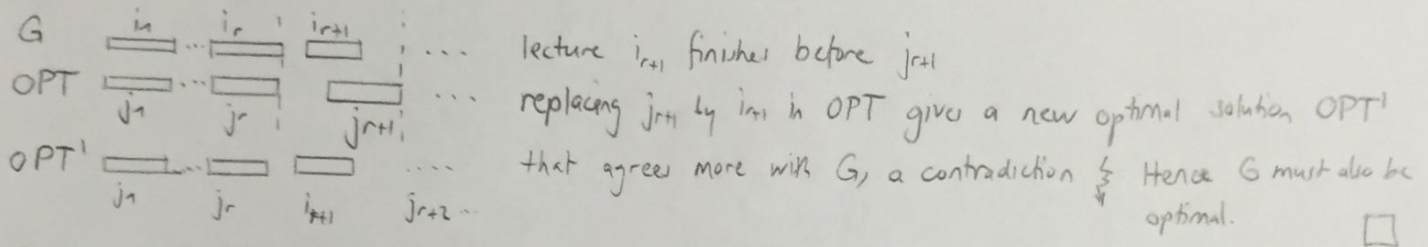 G i₁ ... iᵣ iᵣ₊₁ ... lecture iᵣ₊₁ finishes before jᵣ₊₁
OPT j₁ ... jᵣ jᵣ₊₁ ... replacing jᵣ₊₁ by iᵣ₊₁ in OPT gives a new optimal solution OPT'
OPT' j₁ ... jᵣ iᵣ₊₁ jᵣ₊₂ ... that agrees more with G, a contradiction ↯ Hence G must also be
optimal. □